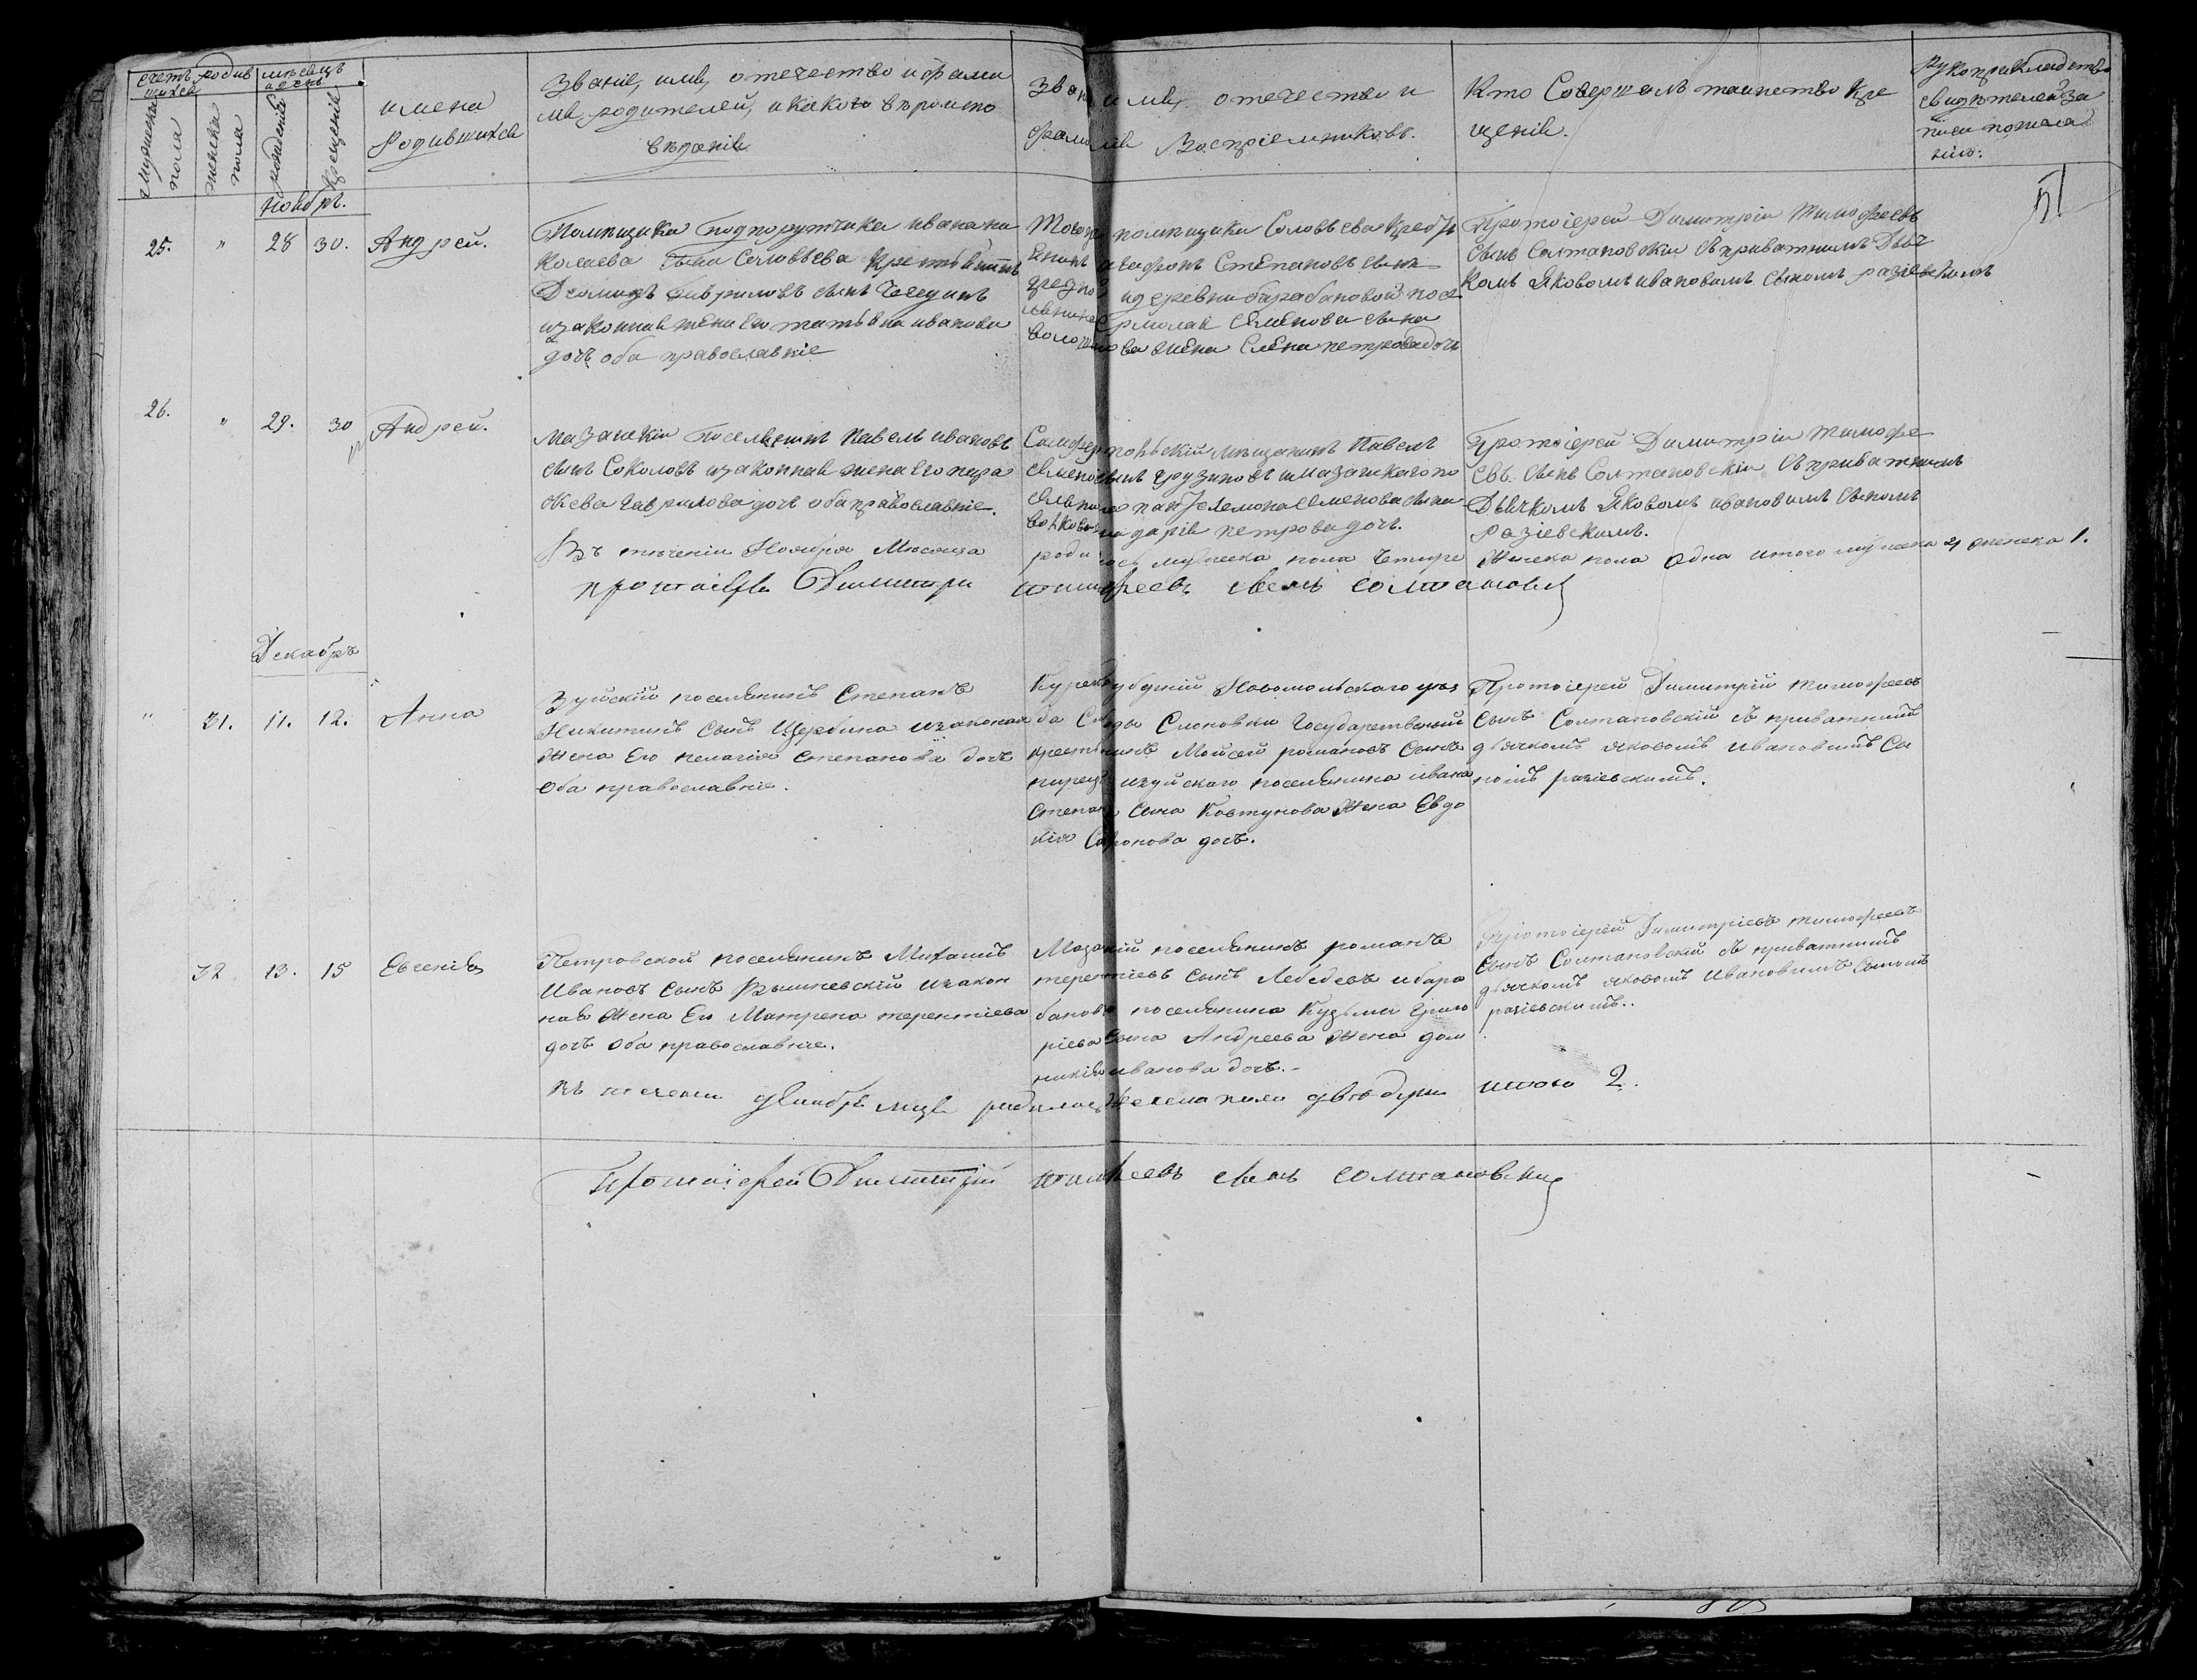 счетъ родив
шихся
мужеска
пола
женска
пола
мѣсецъ
и день
рожденія
крещенія
имена
Родившихся
Званіе, имя, отечество и фами
лія родителей, и какого вѣроиспо
вѣданія
Званіе имя, отечество и
фамилія Воспріемниковъ.
Кто Совершалъ таинство кре
щенія.
Рукоприкладство
свидѣтелей за
писи по жела
нію.
Ноябрь.
25. " 28 30. Андрей.
Помѣщика Подпорутчика ивана ни
колаева сына Соловьева крестьянинъ
Деомидъ Гавриловъ сынъ
изаконная жена Его татьяна иванова
дочь оба православніе
Тогоже помѣщика Соловьева крестья
енинъ агафонъ Степановъ сынъ
и деревни барабановой посе
ленина Ермолая Семенова сына
жена Елена петрова дочь
Протоіерей Димитрій Тимофеевъ
сынъ Солтановскій съ приватнимъ Дья
комъ Яковомъ ивановимъ сыномъ разіевскимъ
26. " 29. 30 Андрей.
мазанскій Поселянинъ Павелъ ивановъ
сынъ Соколовъ изаконная жена Его пара
скева Гаврилова дочь оба православніе.
Симферопольскій мѣщанинъ Павелъ
сынъ грузиновъ и мазанскаго по
селянина пантелемона семенова сына
жена дарія петрова дочь.
Протоіерей Димитрій Тимофе
евъ сынъ Солтановскій съ приватнимъ
Дьячкомъ Яковомъ ивановимъ сыномъ
разіевскимъ.
Въ теченіи Ноября Мѣсяца родилось мужеска пола четире Женска пола одна итого мужеска 4 женска 1.
протоіерей Димитрій тимофеевъ сынъ солтановскій
Декабрь
" 31. 11. 12. Анна
Зуйскій поселянинъ Степанъ
Никитинъ Сынъ Щербина изаконая
Жена Его пелагія Степанова дочь
Оба православніе.
Курской губерніи Новооскольского уез
да Слободы Слоновки Государственый
крестьянинъ Мойсей романовъ Сынъ
изуйского поселянина ивана
Степанова Сына Ковтунова Жена Евдо
кія Сафонова дочь.
Протоіерей Димитрій тимофеевъ
Сынъ Солтановскій съ приватнимъ
дьячкомъ яковомъ Ивановимъ Сы
номъ разіевскимъ.
32 13. 15 Евгенія
Петровской поселянинъ Михаилъ
Ивановъ Сынъ Вышневскій изакон
ная Жена Его Матрена терентіева
дочь Оба православніе.
Мазанскій поселянинъ романъ
терентіевъ Сынъ Лебедевъ ибара
бановки поселянина Кузьмы Григо
ріева Сына Андреева Жена дом
никія иванова дочь.-
Протоіерей Димитріевъ тимофеевъ
Сынъ Солтановскій съ приватнимъ
дьячкомъ яковомъ Ивановимъ Сыномъ
разіевскимъ..
въ теченіи декабря мца родилось Женска пола двѣ души итого 2.
Протоіерей Димитрій тимофеевъ сынъ солтановскій